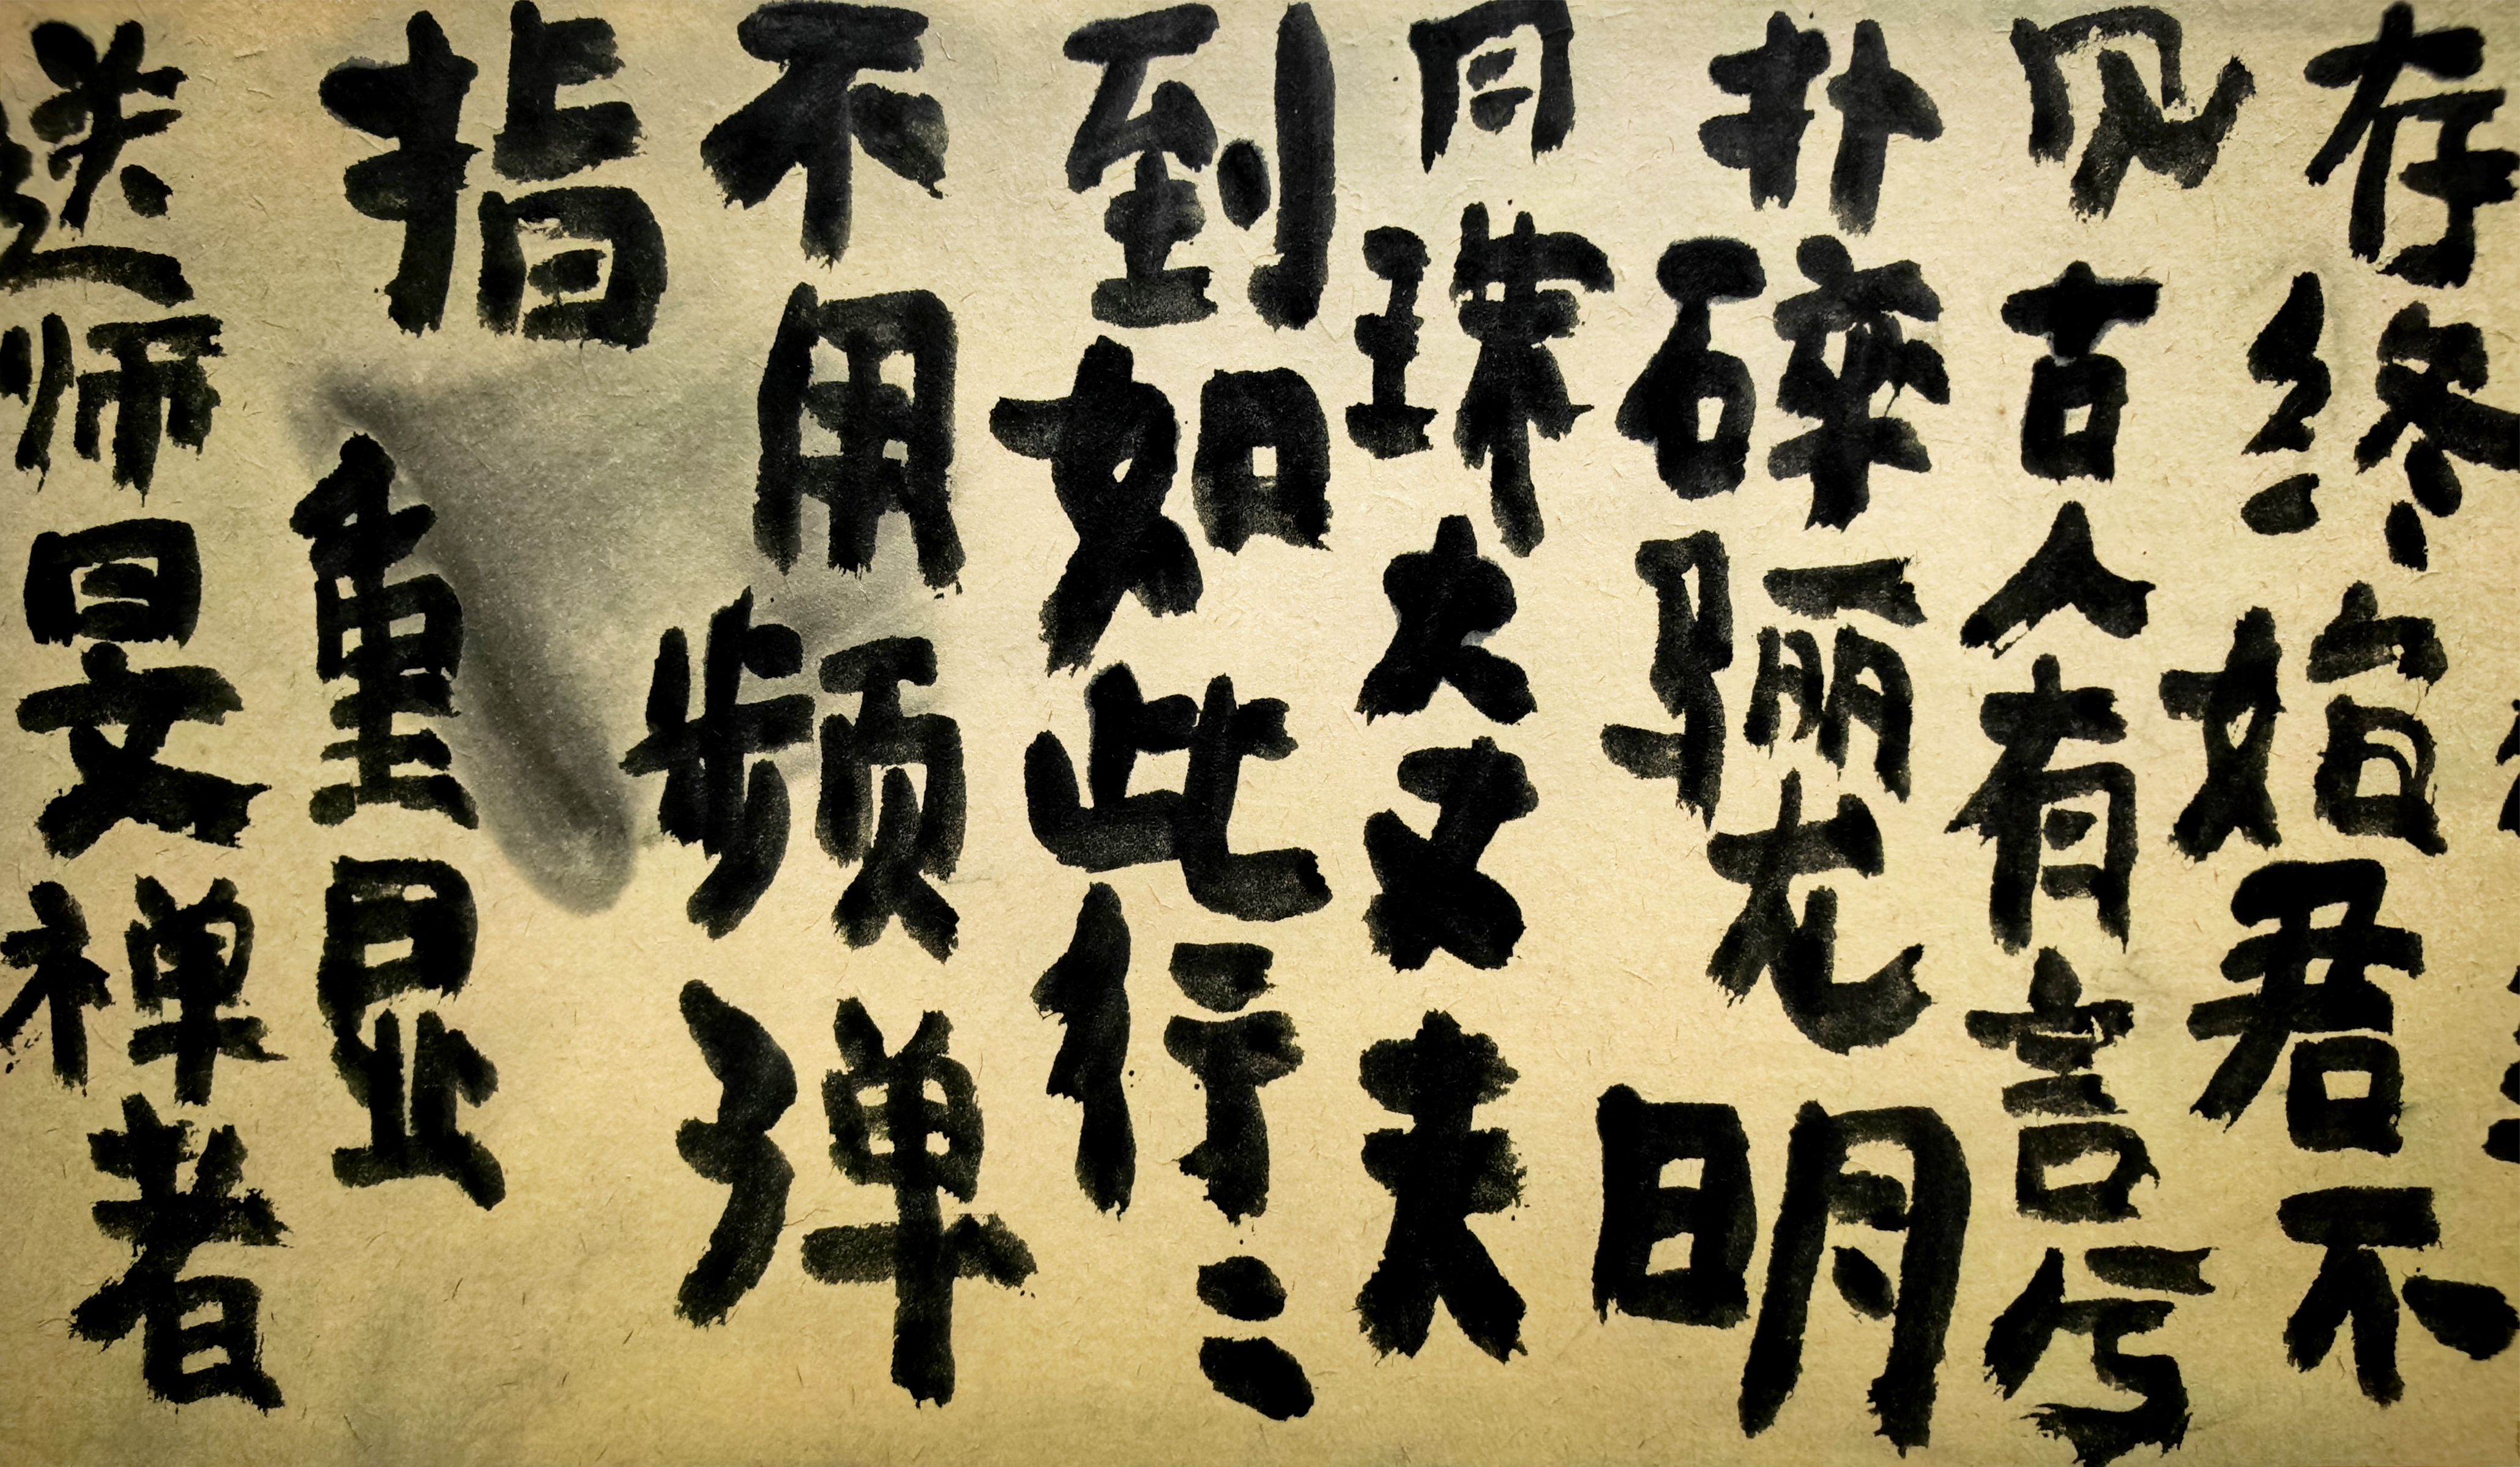 存终始君不
见古人有言兮
扑碎骊龙明
月珠大丈夫
到如此行〻
不用频弹
指重显
送师旻禅者